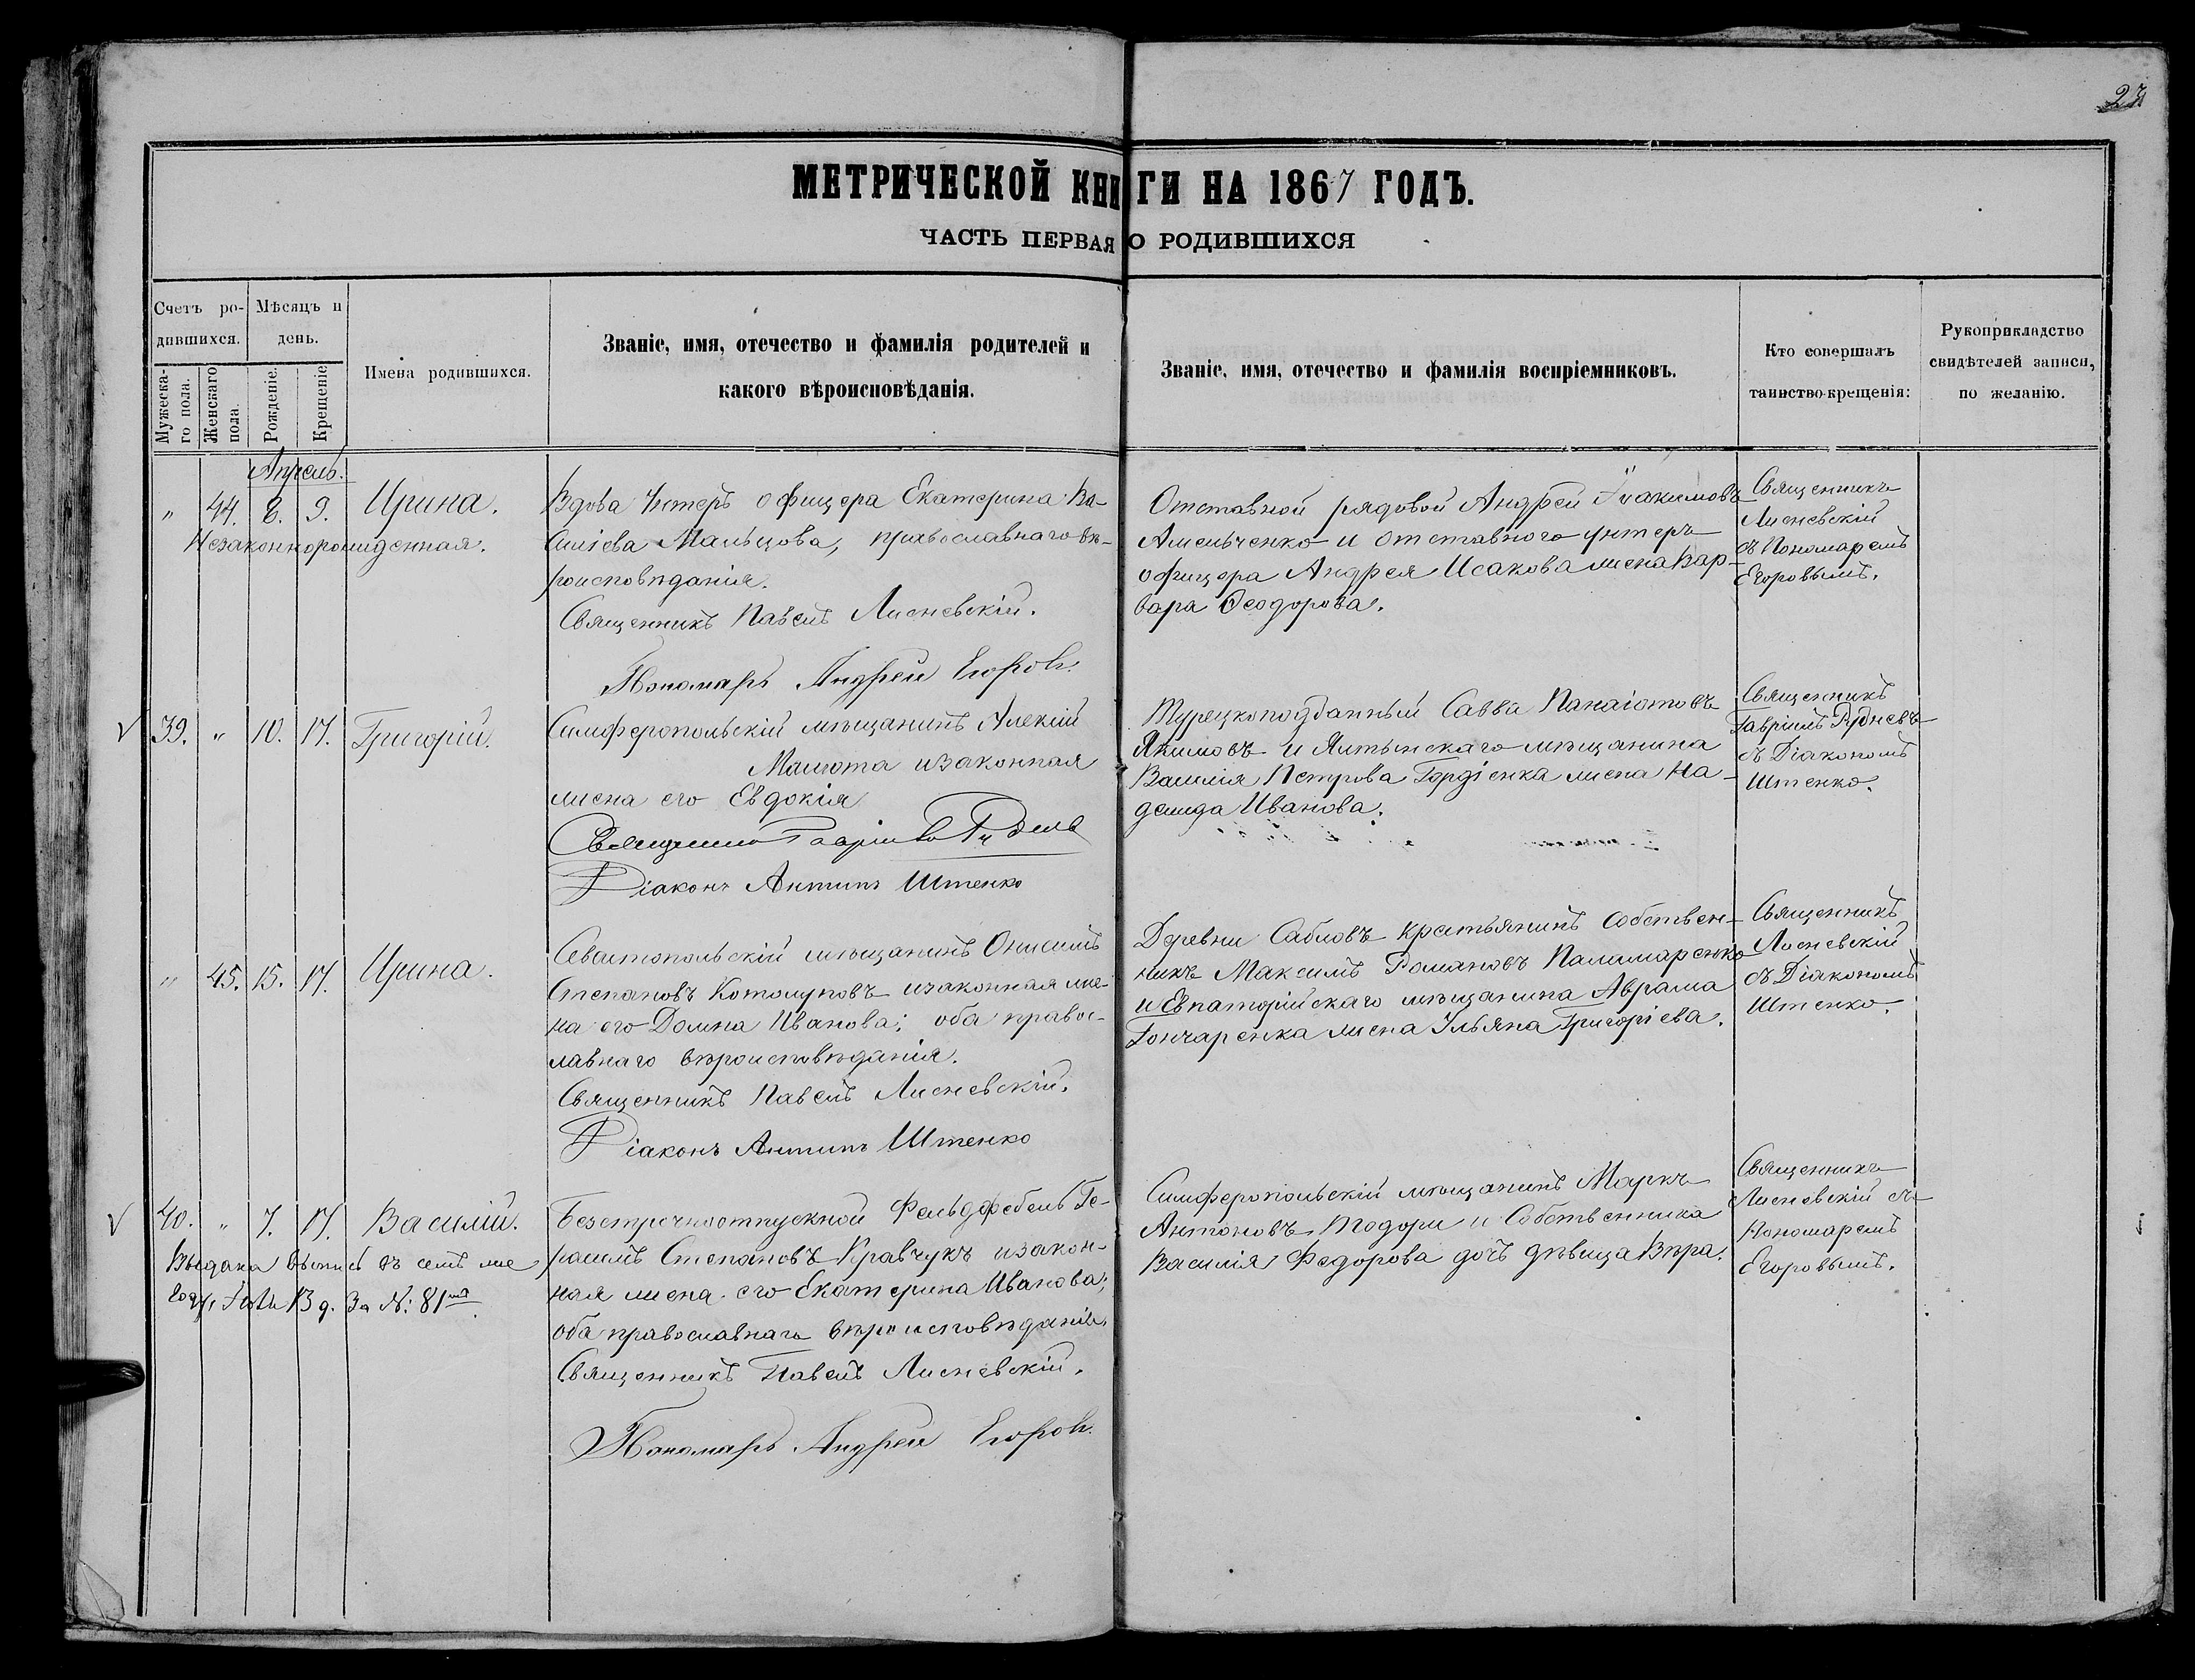 23
МЕТРИЧЕСКОЙ КНИГИ НА 1867 ГОДЪ.
ЧАСТЬ ПЕРВАЯ О РОДИВШИХСЯ
Счетъ ро-
дившихся.
Мужеска-
го пола.
Женскаго
пола.
Мѣсяцъ и
день.
Рожденіе.
Крещеніе
Имена родившихся.
Званіе, имя, отечество и фамилія родителей и
какого вѣроисповѣданія.
Званіе, имя, отечество и фамилія воспріемниковъ.
Кто совершалъ
таинство крещенія:
Рукоприкладство
свидѣтелей записи,
по желанію.
Апрель.
" 44. 8. 9. Ирина.
Незаконнорожденная.
Вдова Унтеръ офицера Екатерина Ва-
силіева Мальцова, православнаго вѣ-
роисповѣданія.
Священникъ Павелъ Лисневскій.
Пономарь Андрей Егоровъ.
Отставной рядовой Андрей Іоакимовъ
Амельченко и отставного унтеръ
офицера Андрея Исакова жена Вар-
вара Ѳеодорова.
Священникъ
Лисневскій
съ Пономаремъ
Егоровымъ.
39. " 10. 17. Григорій.
Симферопольскій мѣщанинъ Алексій
Малюта и законная
жена его Евдокія
Священникъ Гавріилъ
Діаконъ Антипъ Штенко
Турецкоподданный Савва Панаіотовъ
Якимовъ и Ялтынскаго мѣщанина
Василія Петрова Гордіенка жена На-
дежда Иванова.
Священникъ
Гавріилъ Рудневъ
съ Діакономъ
Штенко.
" 45. 15. 17. Ирина.
Севастопольскій мѣщанинъ Онисимъ
Степановъ Котолуповъ и законная же-
на его Домна Иванова; оба правос-
лавнаго вѣроисповѣданія.
Священникъ Павелъ Лисневскій.
Діаконъ Антипъ Штенко
Деревни Сабловъ крестьянинъ Собствен-
никъ Максимъ Романовъ Паламаренко
и Евпаторійскаго мѣщанина Аврама
Гончаренка жена Ульяна Григоріева.
Священникъ
Лисневскій
съ Діакономъ
Штенко.
40. " 7. 17. Василій.
Выдана выпись въ семъ же
году, За №: 81
Безсрочноотпускной Фельдфебель Ге-
расимъ Степановъ Кравчукъ и закон-
ная жена его Екатерина Иванова,
оба православнаго вѣроисповѣданія.
Священникъ Павелъ Лисневскій.
Пономарь Андрей Егоровъ.
Симферопольскій мѣщанинъ Маркъ
Антоновъ Тодори и Собственника
Василія Федорова дочь дѣвица Вѣра.
Священникъ
Лисневскій съ
Пономаремъ
Егоровымъ.